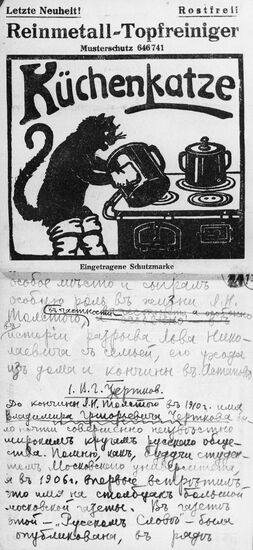 Letzte Neuheit! Rostfrei!
Reinmetall-Topfreiniger
Musterschutz 646741
Küchenkatze
Eingetragene Schutzmarke
особое мѣсто и сыгралъ
особую роль въ жизни Л.Н.
Толстого въ частности
въ исторіи разрыва Льва Нико-
лаевича съ семьей, его ухода
изъ дома и кончины въ Астаповѣ
I. В.Г. Чертковъ.
До кончины Л.Н. Толстого въ 1910 г. имя
Владимира Григорьевича Черткова бы-
ло почти совершенно неизвѣстно
широкимъ кругамъ русского обще-
ства. Помню, какъ, будучи студен-
томъ Московского университета,
я въ 1906 г. впервые встрѣтилъ
это имя на столбцахъ большой
московской газеты. Въ газетѣ
этой — „Русскомъ Словѣ" — была
опубликована, въ рядѣ